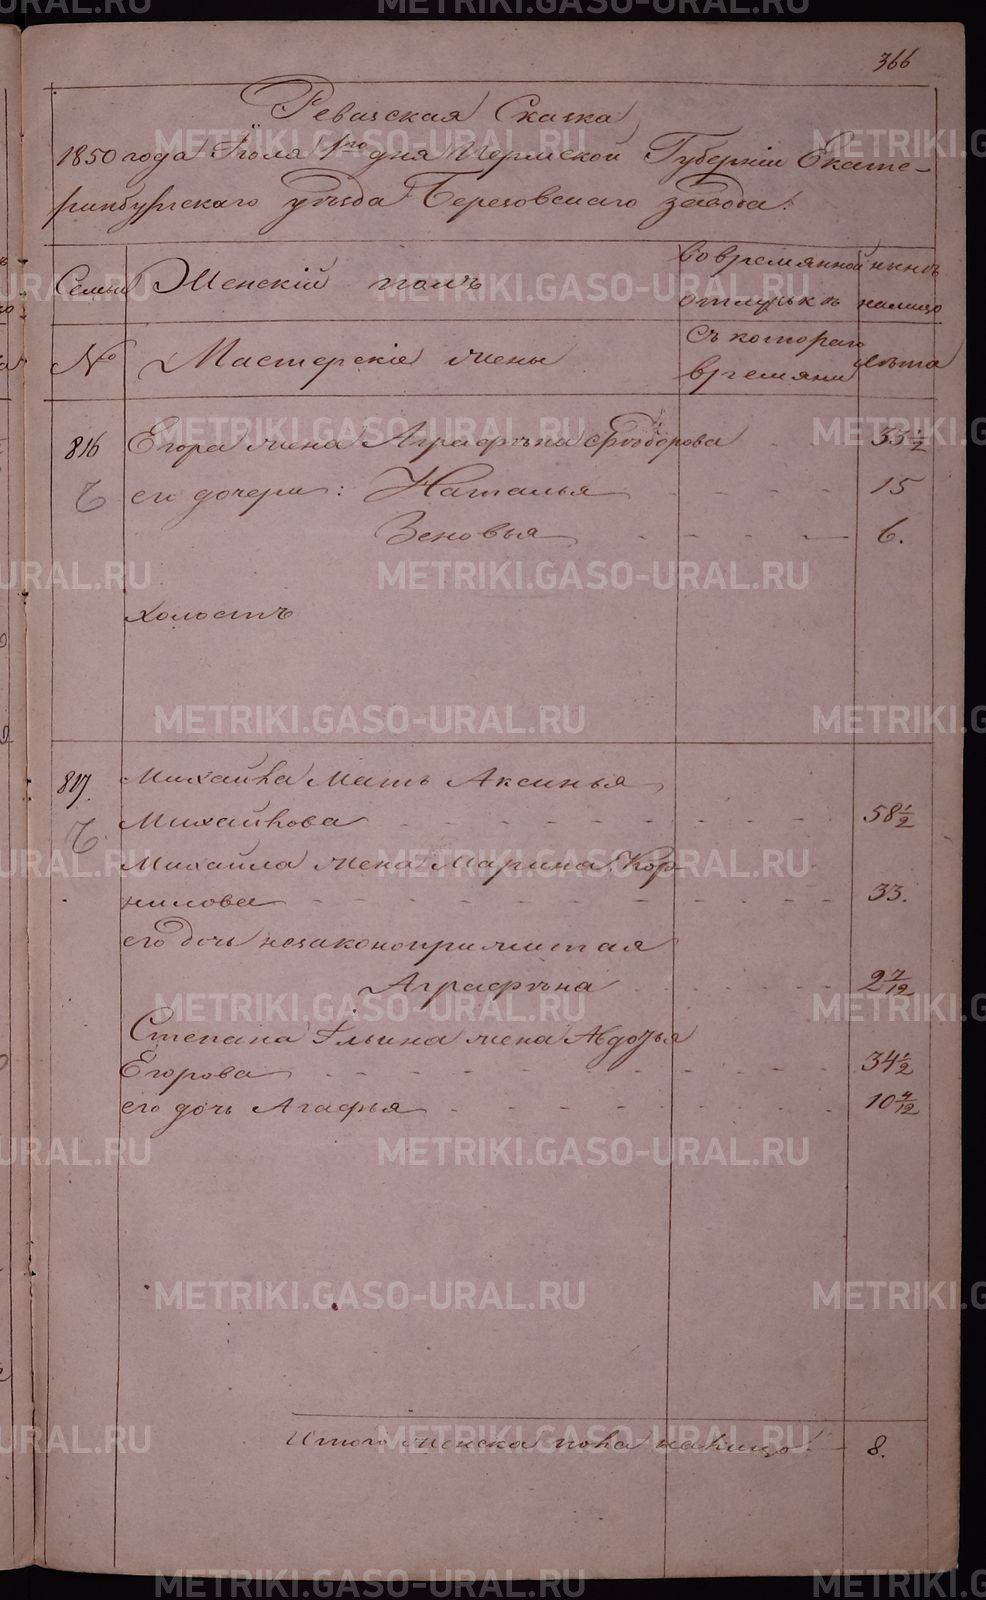 366
Ревизская Сказка
1850 года Іюля 1го дня Пермской Губерніи Екате-
ринбургскаго уѣзда Березовскаго завода.
Семьи Женскій полъ Во времянной отлучкѣ нынѣ налицо
№ Мастерскіе жены Съ котораго времяни лѣта
816 Егора жена Аграфѣна Ѳедорова 33 1/2
его дочери: Наталья 15
Зеновья 6.
холостъ
817. Михайла Мать Аксинья
Михайлова 58 1/2
Михайла жена Марина Кор
нилова 33.
его дочь незаконоприжитая
Аграфѣна 2 7/12
Степана Ильина жена Авдотья
Егорова 34 1/2
его дочь Агафья 10 4/12
Итого женска пола налицо 8.
METRIKI.GASO-URAL.RU